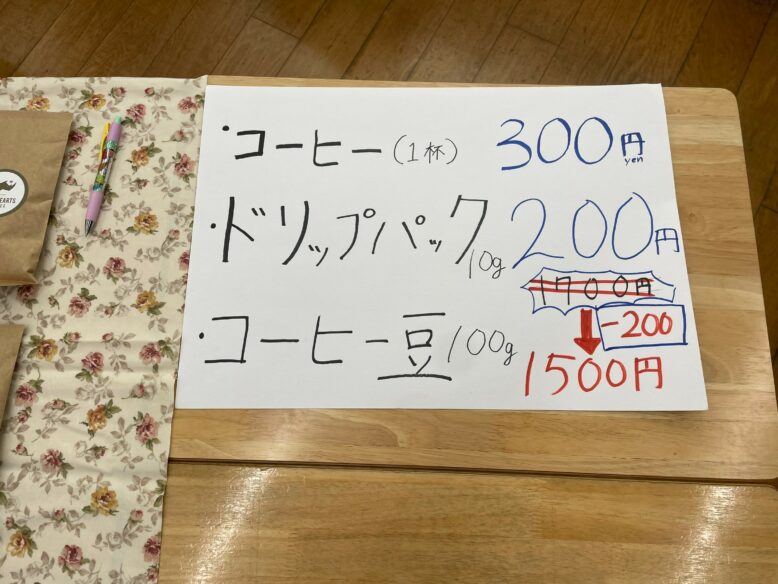 ・コーヒー(1杯) 300円
yen
・ドリップパック10g 200円
1700円
-200
・コーヒー豆100g 1500円
EARTS